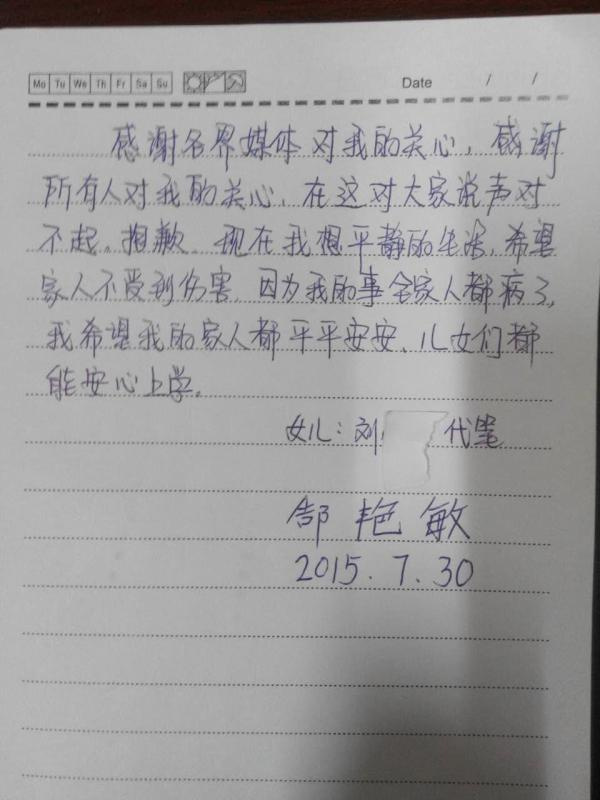 Mo Tu We Th Fr Sa Su
Date / /
感谢各界媒体对我的关心，感谢
所有人对我的关心，在这对大家说声对
不起，抱歉。现在我想平静的生活，希望
家人不受到伤害，因为我的事全家人都病了，
我希望我的家人都平平安安、儿女们都
能安心上学。
女儿：刘 代笔
郜艳敏
2015.7.30